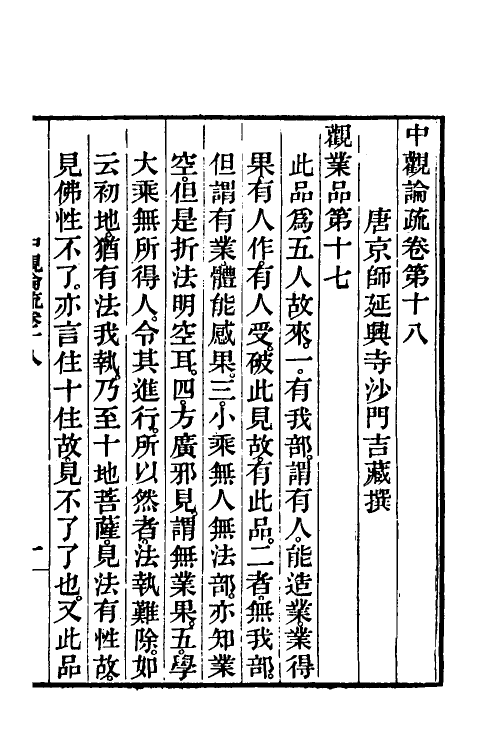 中觀論疏卷第十八
唐京師延興寺沙門吉藏撰
觀業品第十七
此品爲五人故來。一。有我部。謂有人。能造業。業得
果。有人作。有人受。破此見故。有此品。二者。無我部。
但謂有業。體能感果。三。小乘無人無法部。亦知業
空。但是折法明空耳。四。方廣邪見。謂無業果。五。學
大乘無所得人。令其進行。所以然者。法執難除。如
云初地。猶有法我執。乃至十地菩薩。見法有性故。
見佛性不了。亦言住十住故。見不了了也。又此品
中觀論疏卷十八
一